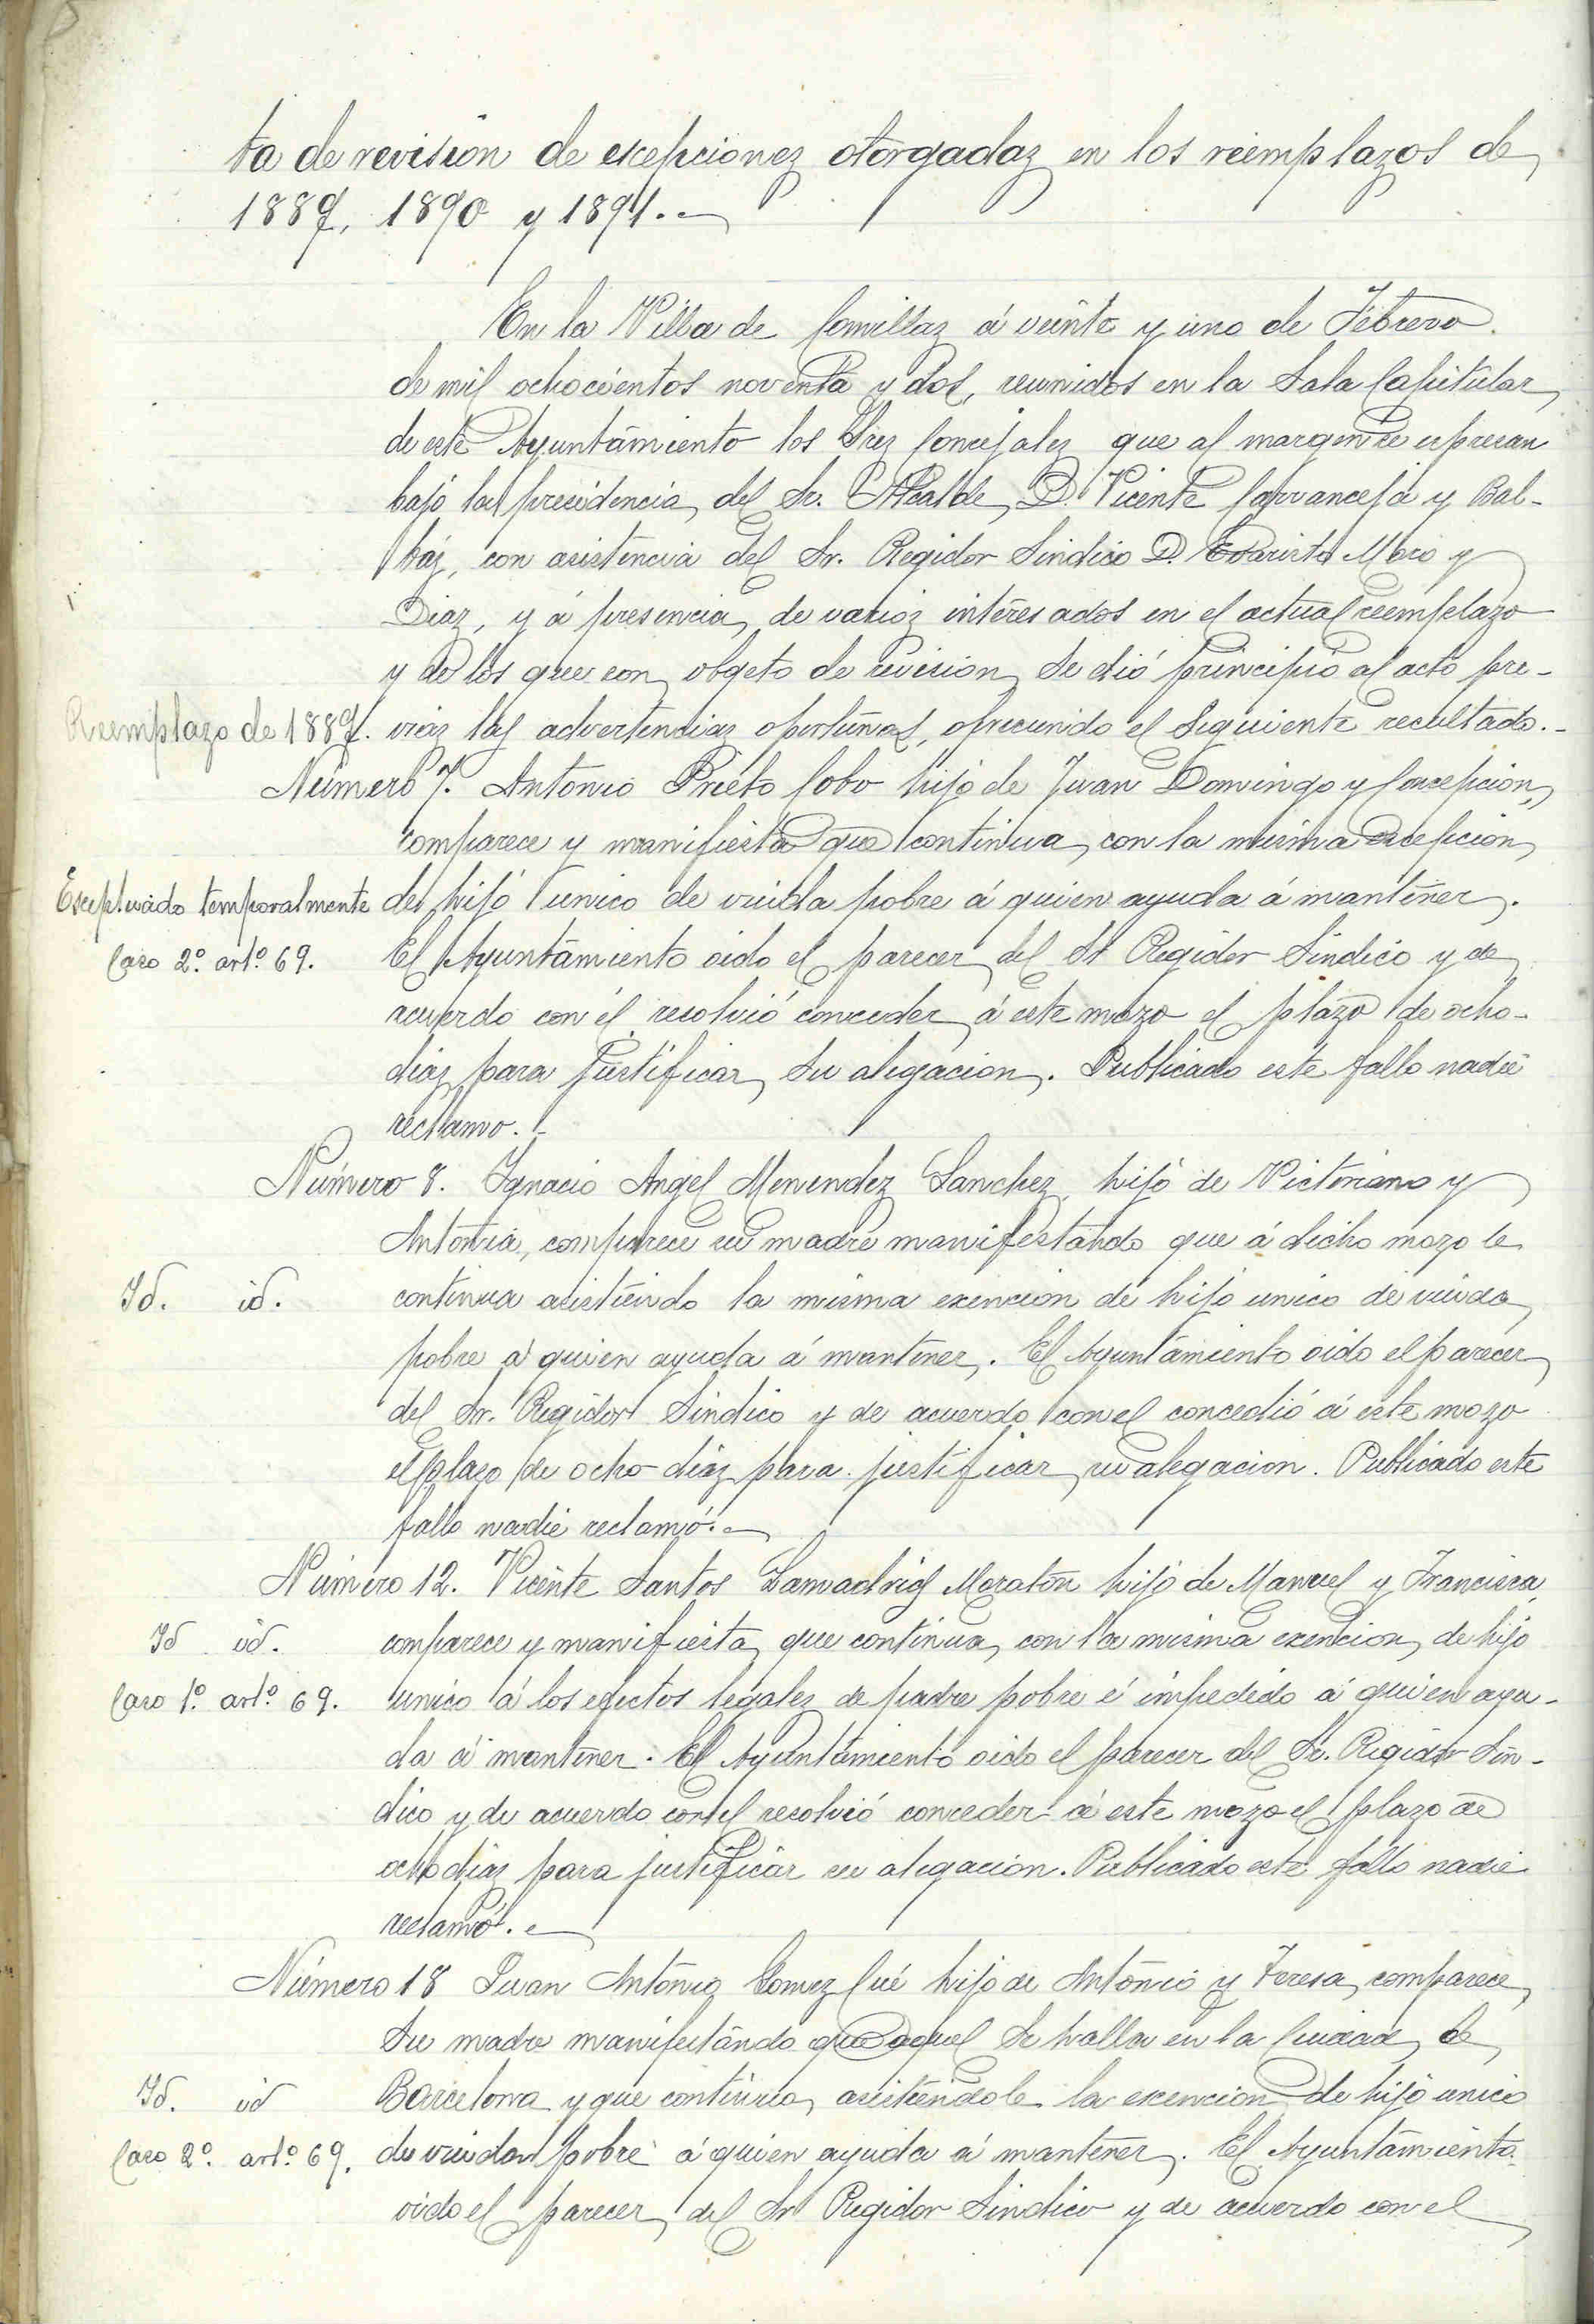 ta de revision de escepciones otorgadas en los reemplazos de
1889, 1890 y 1891.
En la Villa de Comillas á veinte y uno de Febrero
de mil ochocientos noventa y dos, reunidos en la Sala Capitular
de este Ayuntamiento los Sres Concejales que al margen se espresan
bajo la presidencia del Sr. Alcalde D. Vicente Carranceja y Bal-
bás, con asistencia del Sr. Regidor Sindico D. Evaristo Moro y
Diaz, y á presencia de varios interesados en el actual reemplazo
y de los que son obgeto de revision, se dió principio al acto pre-
Reemplazo de 1889. vias las advertencias oportunas, ofreciendo el siguiente resultado.-
Número 7. Antonio Prieto Cobo hijo de Juan Domingo y Concepcion,
comparece y manifiesta que continua con la misma escepcion
Esceptuado temporalmente de hijo unico de viuda pobre á quien ayuda á mantener.
Caso 2º. artº. 69. El Ayuntamiento oido el parecer del Sr Regidor Sindico y de
acuerdo con él resolvió conceder á este mozo el plazo de ocho-
dias para justificar su alegacion. Publicado este fallo nadie
reclamo.-
Número 8. Ignacio Angel Menendez Sanchez, hijo de Victoriano y
Antonia, comparece su madre manifestando que á dicho mozo le
Id. id. continua asistiendo la misma exencion de hijo unico de viuda
pobre á quien ayuda á mantener. El Ayuntamiento oido el parecer
del Sr. Regidor Sindico y de acuerdo con el concedió á este mozo
el plazo de ocho dias para justificar su alegacion. Publicado este
fallo nadie reclamó.
Número 12. Vicente Santos Lamadrid Moraton hijo de Manuel y Francisca,
Id id. comparece y manifiesta que continua con la misma exencion de hijo
Caso 1º. artº. 69. unico á los efectos legales de padre pobre é impedido á quien ayu-
da á mantener. El Ayuntamiento oido el parecer del Sr. Regidor Sín-
dico y de acuerdo con el resolvió conceder á este mozo el plazo de
ocho dias para justificar su alegacion. Publicado este fallo nadie
reclamó.
Número 18 Juan Antonio Gomez Cué hijo de Antonio y Teresa, comparece
su madre manifestando que aquel se halla en la Ciudad de
Id. id Barcelona y que continua asistiendole la exencion de hijo unico
Caso 2º. artº. 69. de viuda pobre á quien ayuda á mantener. El Ayuntamiento
oido el parecer del Sr Regidor Sindico y de acuerdo con el